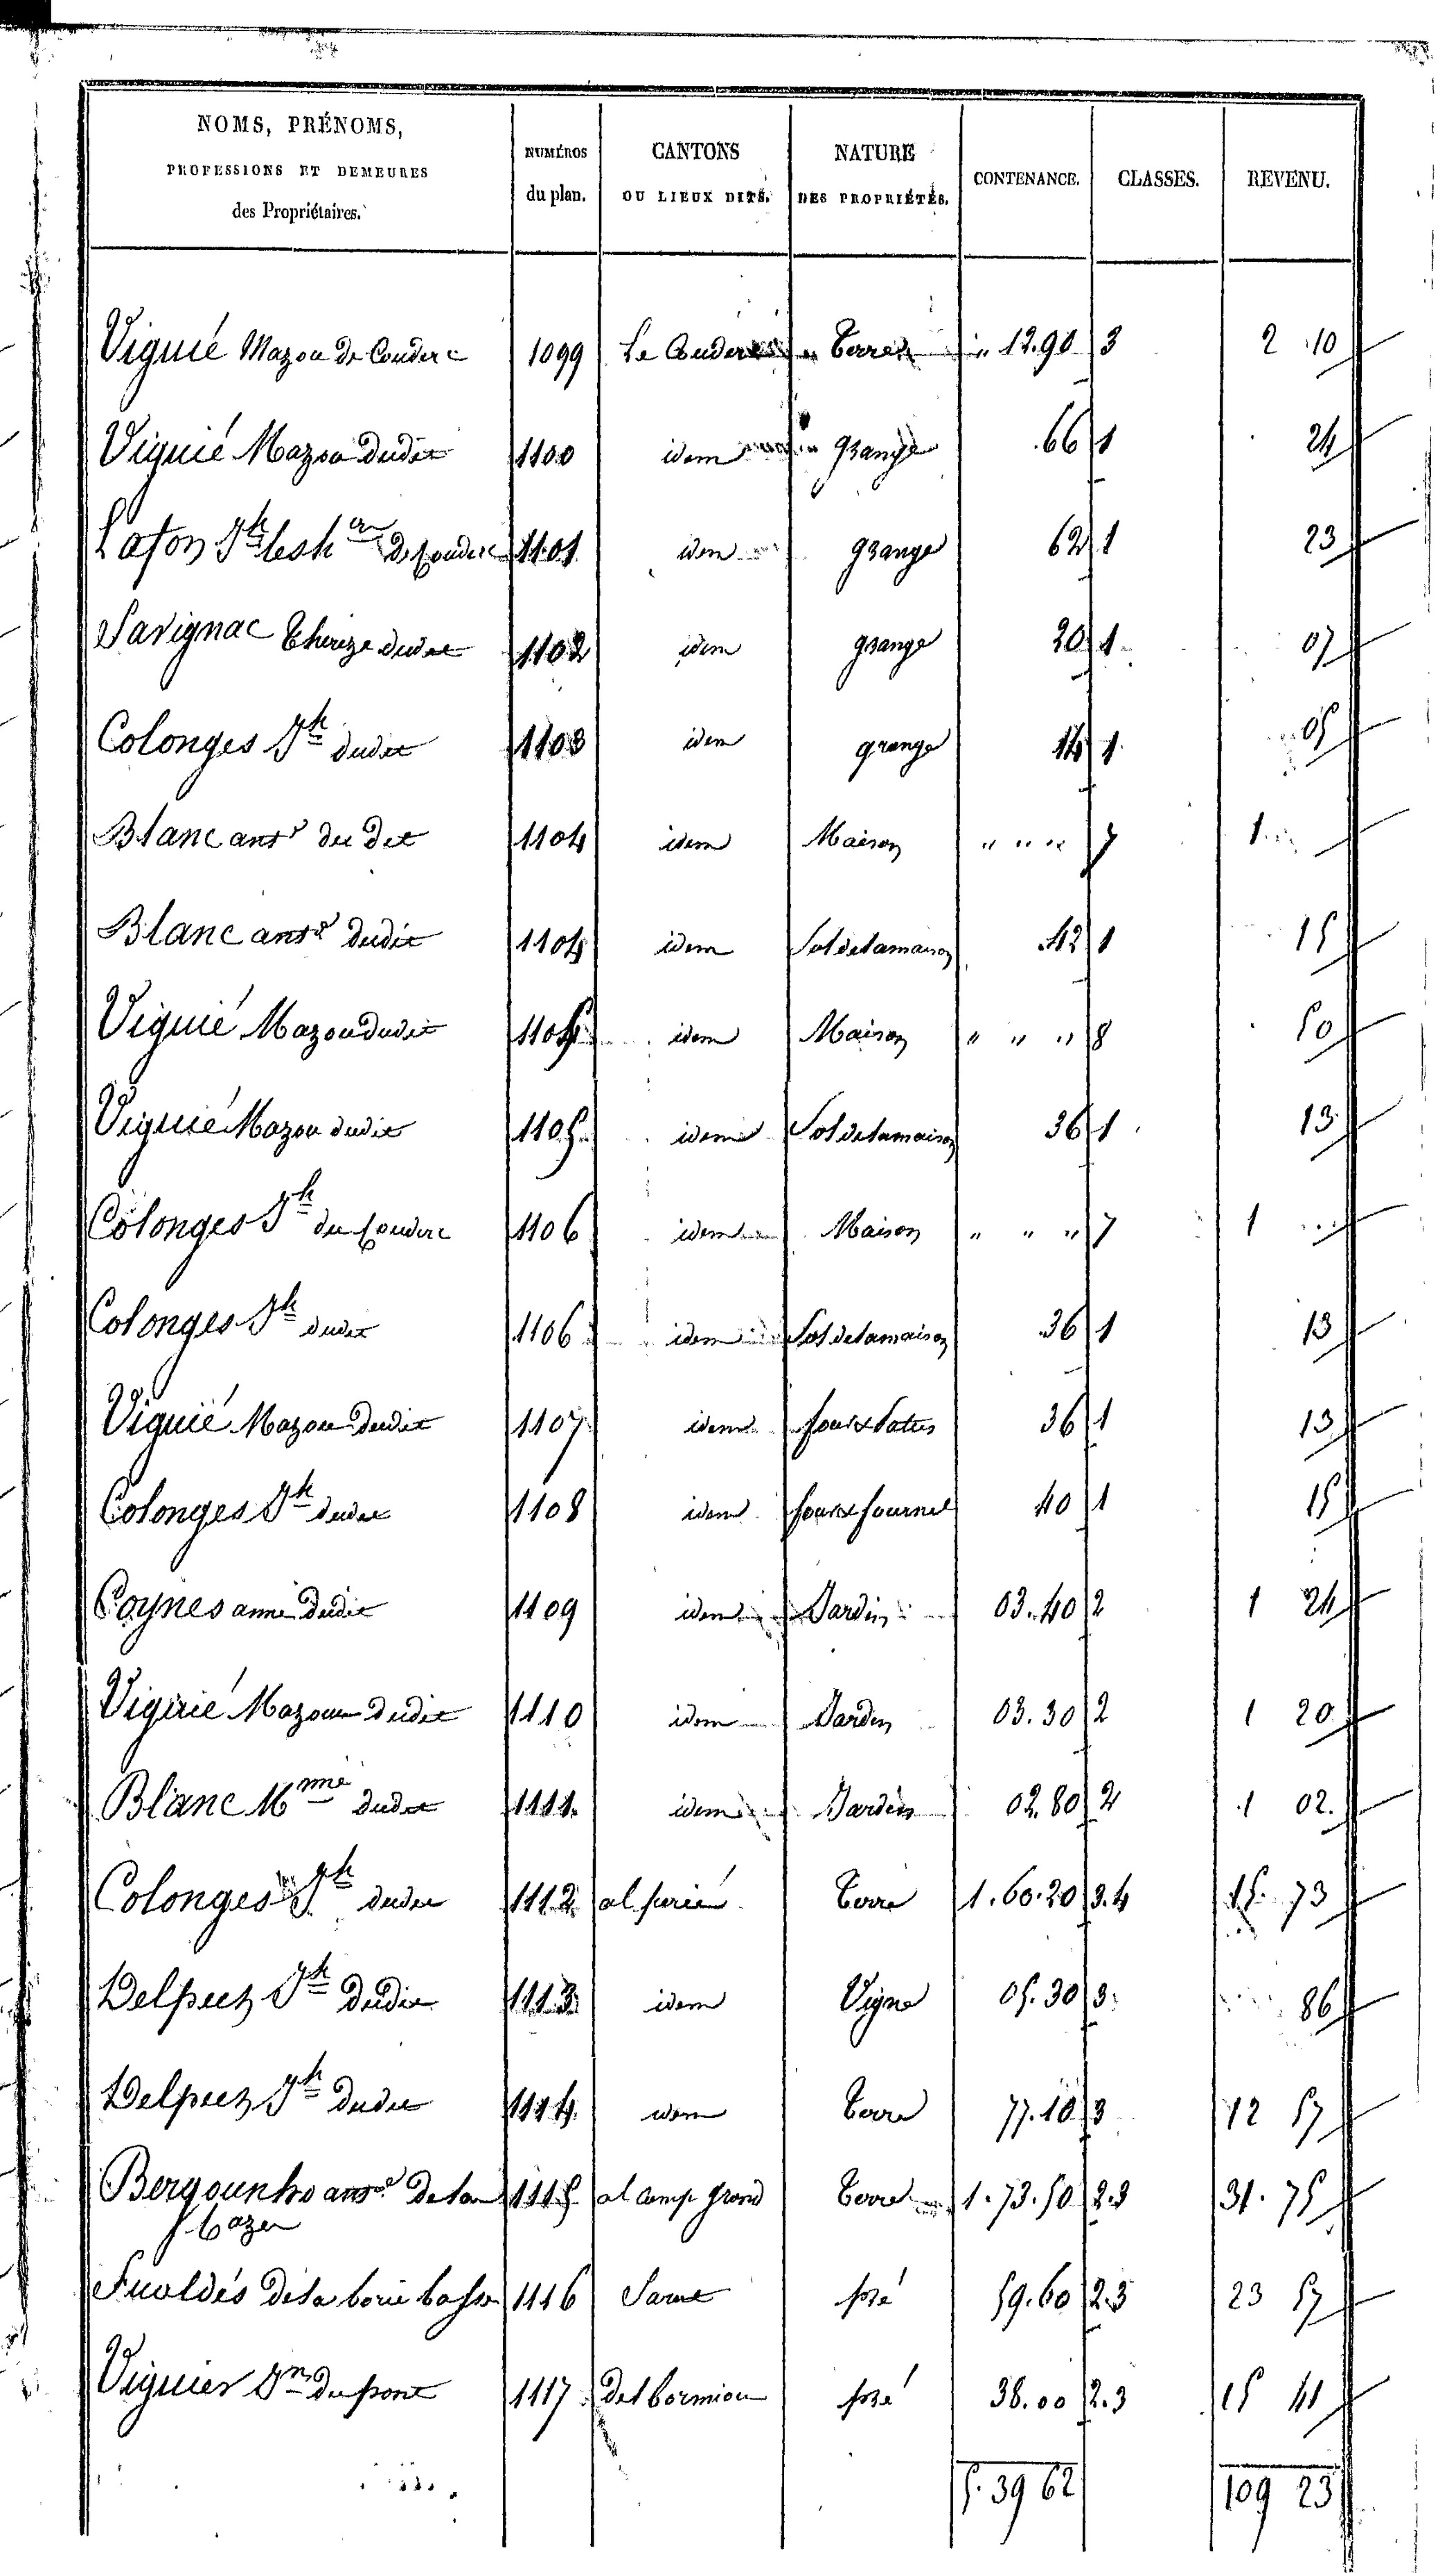 NOMS, PRÉNOMS,
PROFESSIONS ET DEMEURES
des Propriétaires.
NUMÉROS
du plan.
CANTONS
OU LIEUX DITS.
NATURE
DES PROPRIÉTÉS.
CONTENANCE.
CLASSES.
REVENU.
Viguié Mazou de Couderc 1099 Le Couderc Terre " 12.90 3 2 10
Viguié Mazou dudit 1100 idem grange 66 1 24
Lafon Jh de Couderc 1101 idem grange 62 1 23
Savignac Thereze dudit 1102 idem grange 20 1 07
Colonges Jh dudit 1103 idem grange 14 1 05
Blanc ant° du dit 1104 idem Maison " " " 7 1
Blanc ant° dudit 1104 idem Sol de la maison 42 1 15
Viguié Mazou dudit 1105 idem Maison " " " 8 50
Viguié Mazou dudit 1105 idem Sol de la maison 36 1 13
Colonges Jh du Couderc 1106 idem Maison " " " 7 1
Colonges Jh dudit 1106 idem Sol de la maison 36 1 13
Viguié Mazou dudit 1107 idem four & Patus 36 1 13
Colonges Jh dudit 1108 idem four & fournel 40 1 15
Coynes anne dudit 1109 idem Jardin 03.40 2 1 24
Viguié Mazou dudit 1110 idem Jardin 03.30 2 1 20
Blanc dudit 1111 idem Jardin 02.80 2 1 02
Colonges Jh dudit 1112 al perié Terre 1.60.20 3.4 15 73
Delpech Jh dudit 1113 idem Vigne 05.30 3 86
Delpech Jh dudit 1114 idem Terre 77.10 3 12 57
Bergounho ant° de la 1115 al camp grand Terre 1.73.50 2.3 31.75
Cazer
Fualdés de la borie basse 1116 pré 59.60 2.3 23 57
Viguier du pont 1117 pré 38.00 2.3 15 41
5.39 62 109 23